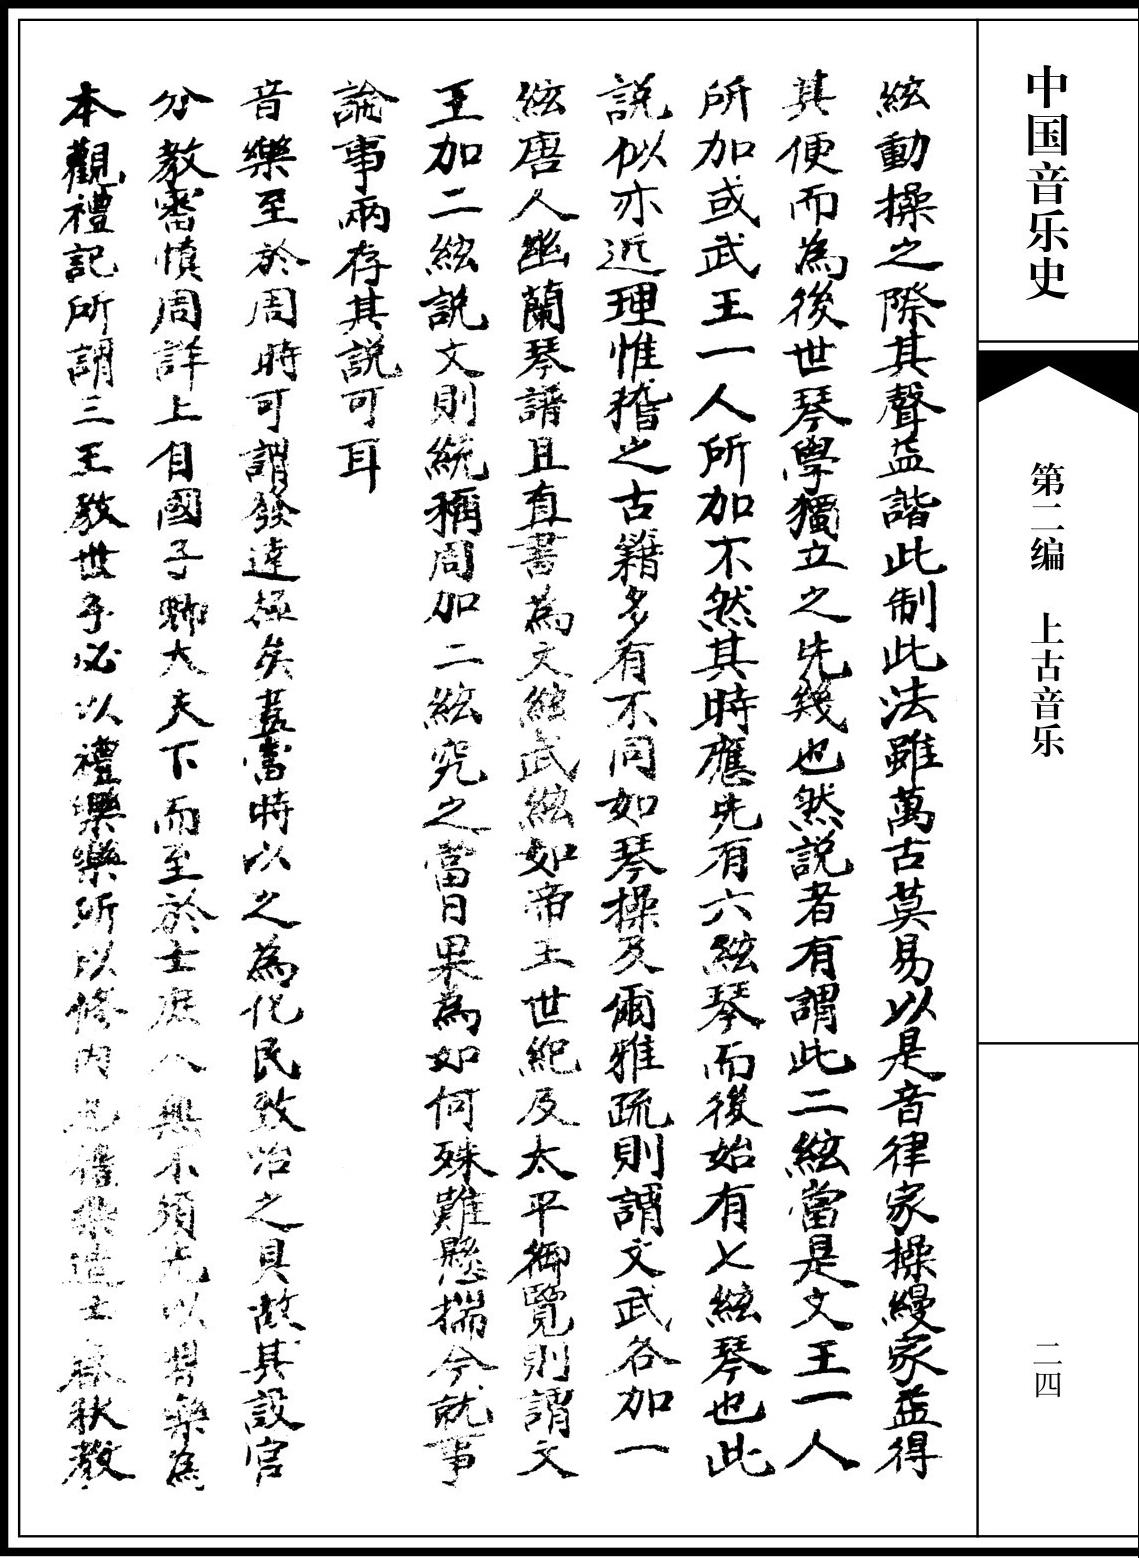 中国音乐史
第二编　上古音乐
二四
絃動操之際其聲益諧此制此法雖萬古莫易以是音律家操縵家益得
其便而為後世琴學獨立之先幾也然說者有謂此二絃當是文王一人
所加或武王一人所加不然其時應先有六絃琴而後始有七絃琴也此
說似亦近理惟稽之古籍多有不同如琴操及爾雅疏則謂文武各加一
絃唐人幽蘭琴譜且直書為文絃武絃如帝王世紀及太平御覽則謂文
王加二絃說文則統稱周加二絃究之當日果為如何殊難懸揣今就事
論事兩存其說可耳
音樂至於周時可謂發達極矣蓋當時以之為化民致治之具故其設官
分教審慎周詳上自國子卿大夫下而至於士庶人無不須先以習樂為
本觀禮記所謂三王教世子必以禮樂樂所以修內也禮樂造士春秋教